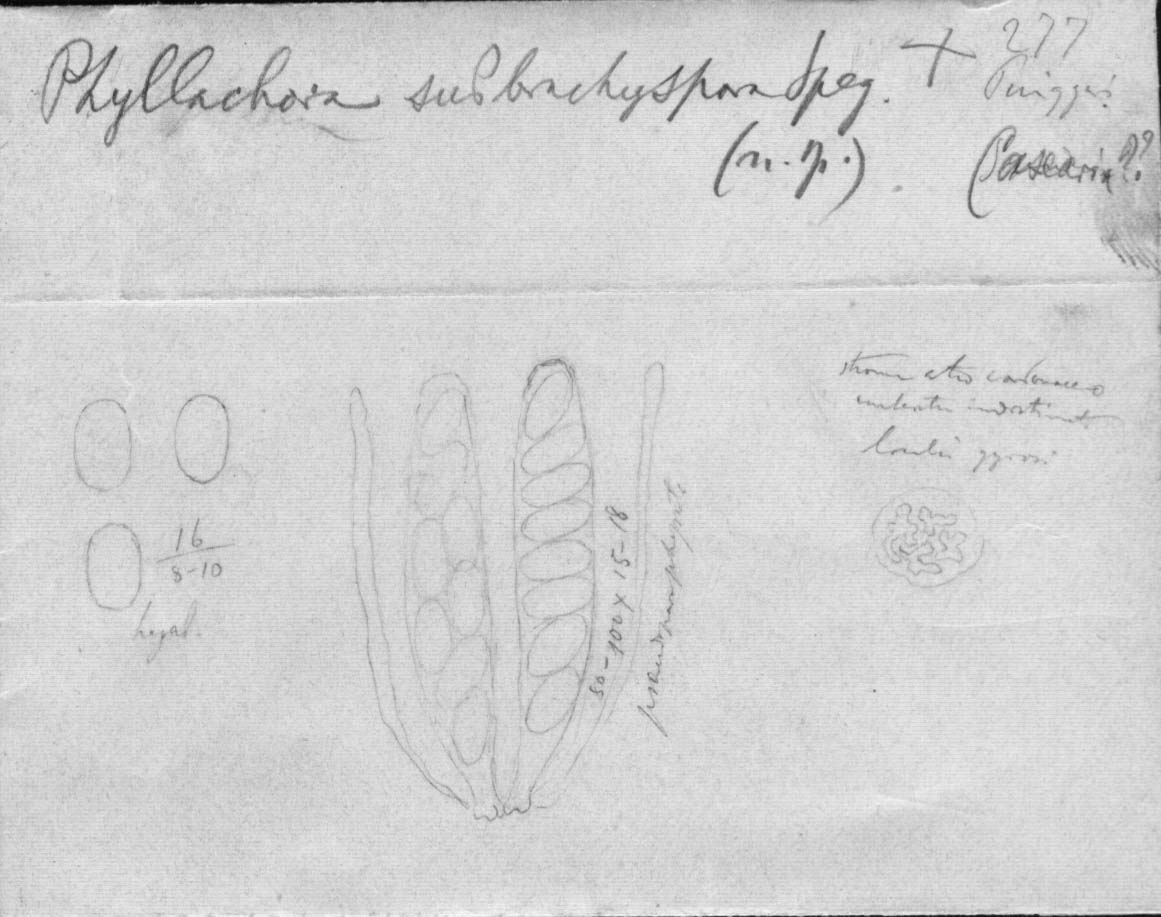 Phyllachora subbrachyspora Speg. + 277
Puiggari
(n. p.)
(Casearia??
stroma atro carbonaceo
loculis gyrosi
16
8-10
hyal.
80-100 x 15-18
pseudoparaphysat.